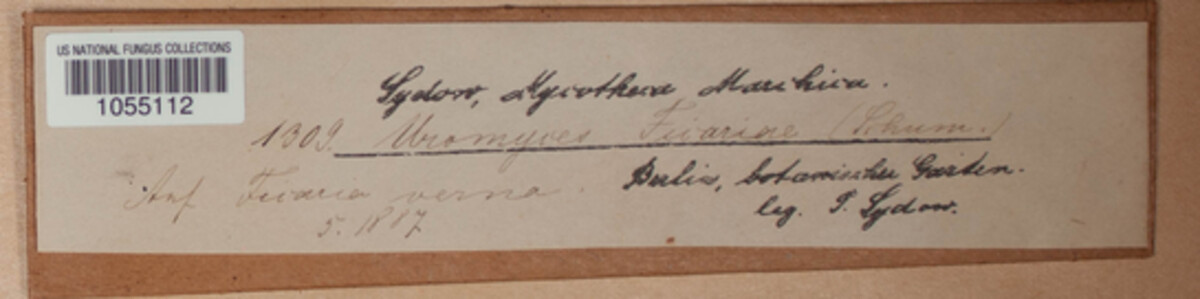 US NATIONAL FUNGUS COLLECTIONS
1055112
Sydow, Mycotheca Marchica.
1309. Uromyces Ficariae (Schum.)
Auf Ficaria verna. Berlin, botanischer Garten.
5. 1887 leg. P. Sydow.